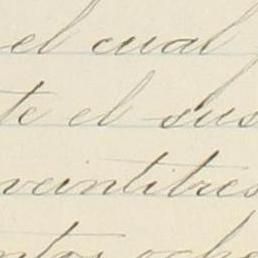 el cual
te el sus
veintitres
ntos oche